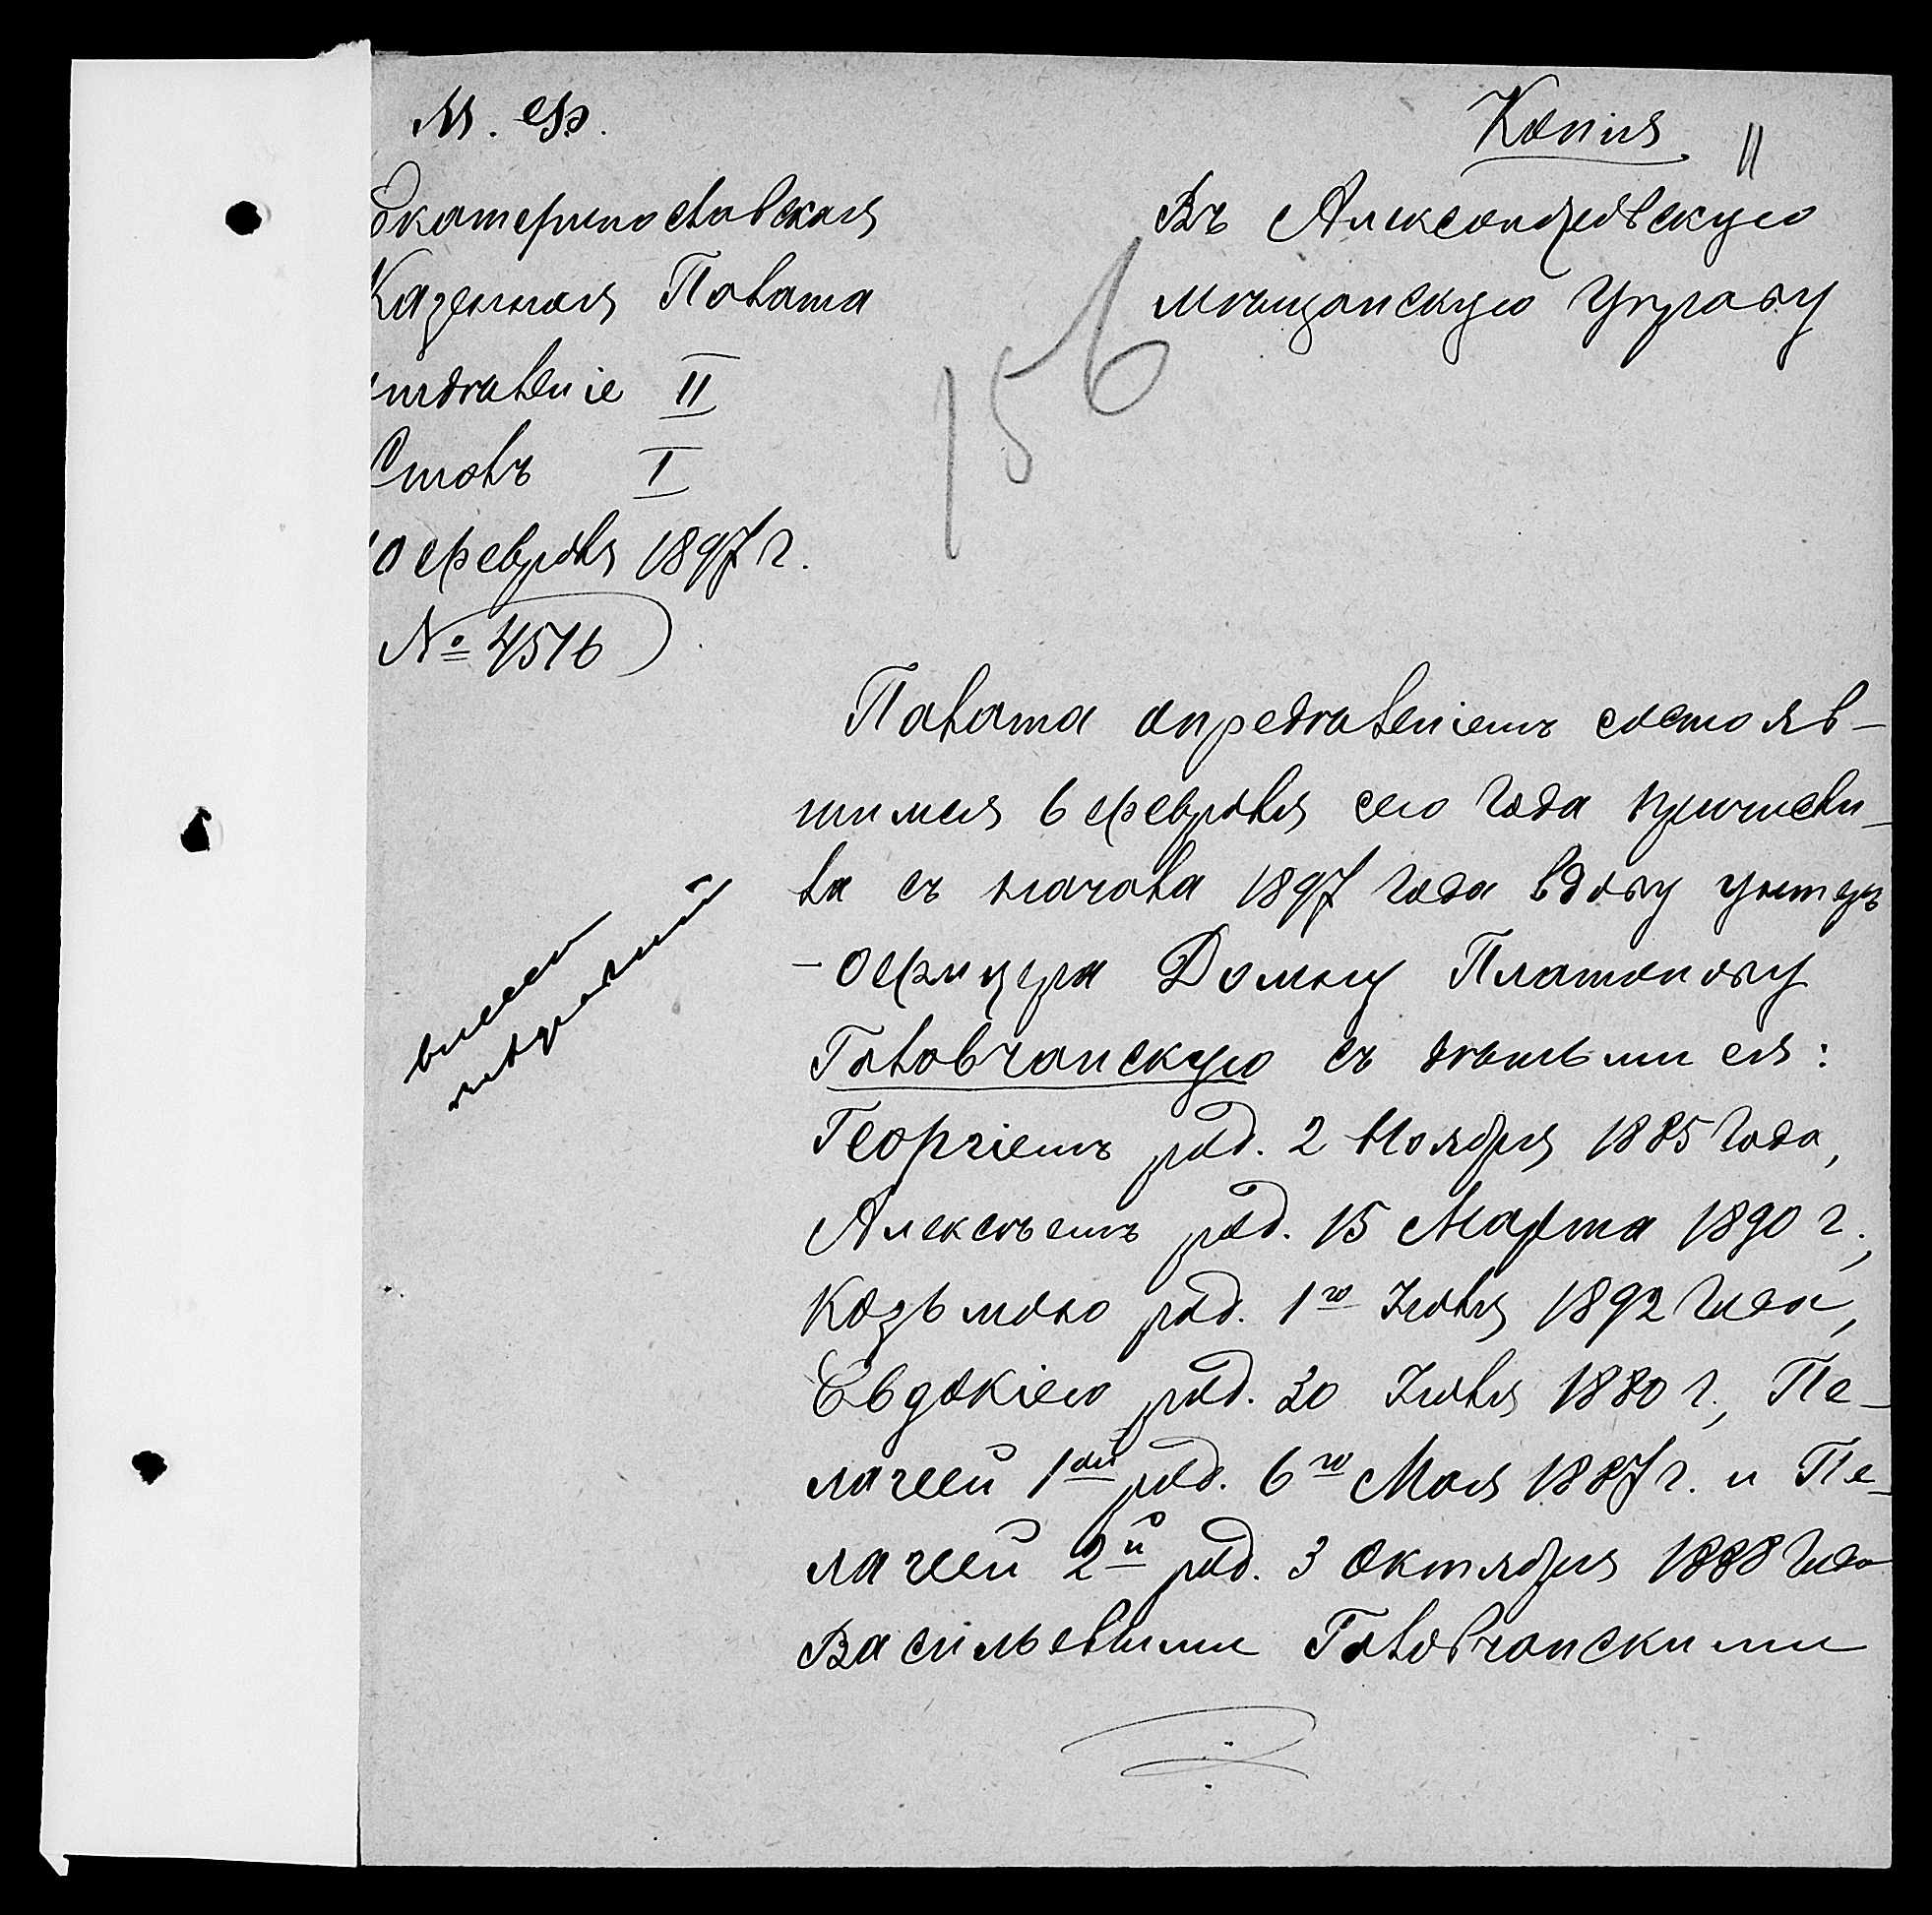 М. Ф.
Копія
11
Екатеринославская
Казенная Палата
отдѣленіе II
Столъ I
10 февраля 1897 г.
№ 4516
Въ Александровскую
мѣщанскую Управу
156
Палата опредѣленіемъ состояв-
шимся 6 февраля сего года причисли-
ла съ начала 1897 года вдову унтеръ
-офицера Домну Платонову
Головчанскую съ дѣтьми ея:
Георгіемъ род. 2 Ноября 1885 года,
Алексѣемъ род. 15 Марта 1890 г.,
Козьмою род. 1го Июля 1892 года,
Евдокіею род. 30 Июля 1880 г., Пе-
лагеей 1ой род. 6го Мая 1887 г. и Пе-
лагеей 2й род. 3 Октября 1888 года
Васильевыми Головчанскими